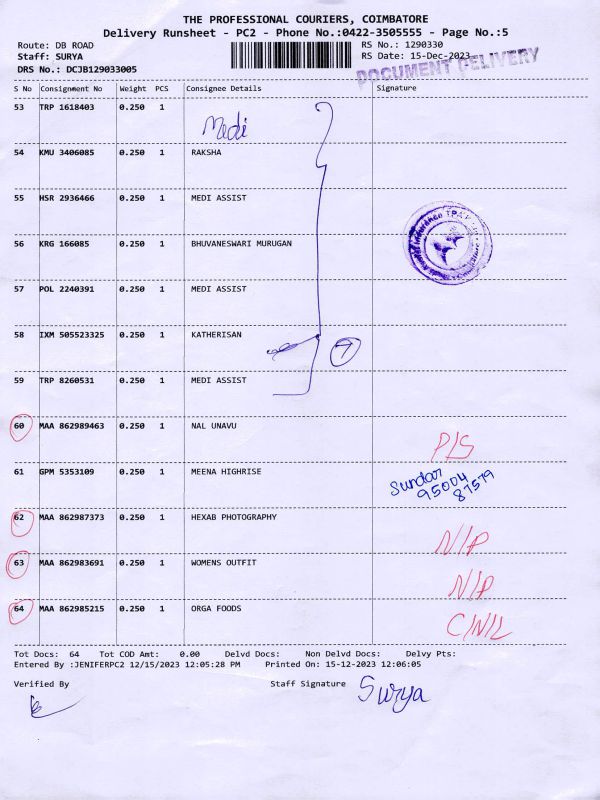 THE PROFESSIONAL COURIERS, COIMBATORE
Delivery Runsheet - PC2 - Phone No.:0422-3505555 - Page No.:5
Route: DB ROAD RS No.: 1290330
Staff: SURYA RS Date: 15-Dec-2023
DRS No.: DCJB129033005
DOCUMENT DELIVERY
S No Consignment No Weight PCS Consignee Details Signature
53 TRP 1618403 0.250 1
Medi
54 KMU 3406085 0.250 1 RAKSHA
55 HSR 2936466 0.250 1 MEDI ASSIST
56 KRG 166085 0.250 1 BHUVANESWARI MURUGAN
57 POL 2240391 0.250 1 MEDI ASSIST
58 IXM 505523325 0.250 1 KATHERISAN
7
59 TRP 8260531 0.250 1 MEDI ASSIST
60 MAA 862989463 0.250 1 NAL UNAVU
P/S
61 GPM 5353109 0.250 1 MEENA HIGHRISE
Sundar
95004
87579
62 MAA 862987373 0.250 1 HEXAB PHOTOGRAPHY
N/P
63 MAA 862983691 0.250 1 WOMENS OUTFIT
N/P
64 MAA 862985215 0.250 1 ORGA FOODS
C/N/L
Tot Docs: 64 Tot COD Amt: 0.00 Delvd Docs: Non Delvd Docs: Delvy Pts:
Entered By :JENIFERPC2 12/15/2023 12:05:28 PM Printed On: 15-12-2023 12:06:05
Verified By Staff Signature Surya